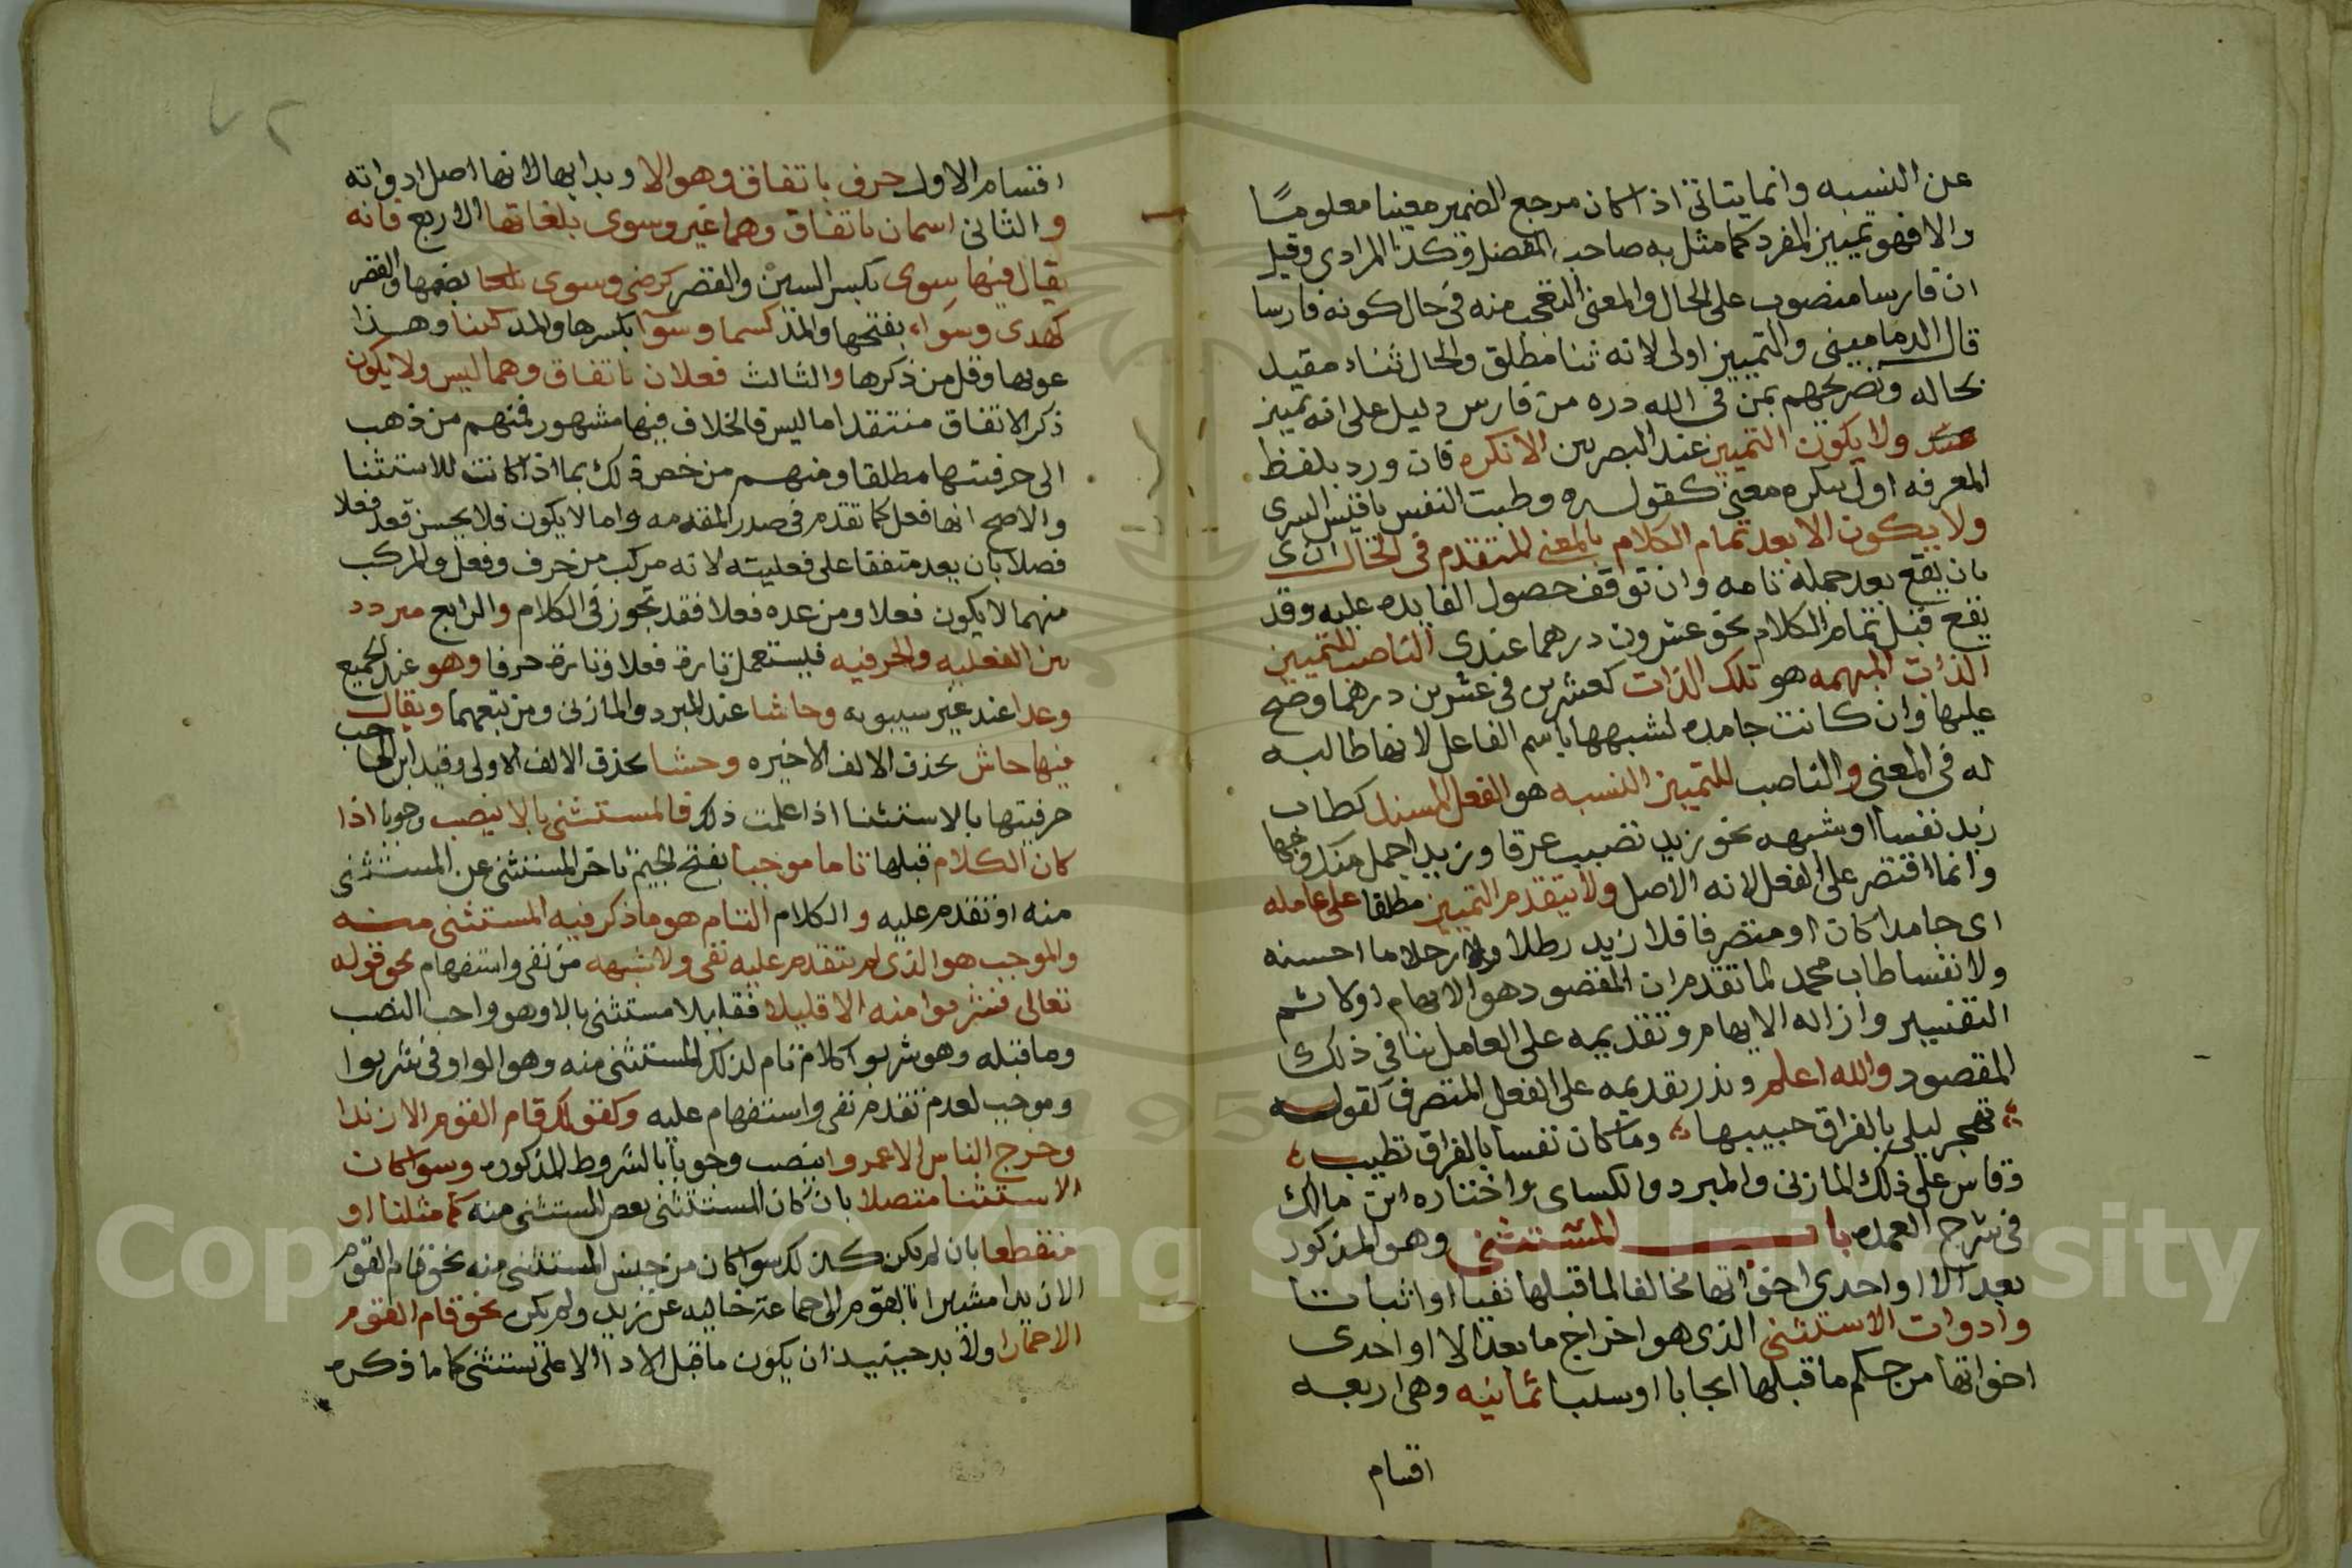 عن النسبه وانما يتاتى اذا كان مرجع الضمير معينا معلوما
والا فهو تمييز المفرد كما مثل به صاحب المفصل وكذا المرادى وقيل
ان فارسا منصوب على الحال والمعنى التعجب منه فى حال كونه فارسا
قال الدمامينى والتمييز اولى لانه ثنا مطلق والحال ثناء مقيد
بحاله وتصريحهم بمن فى لله دره من فارس دليل على انه تمييز
ولا يكون التمييز عند البصريين الا نكره فان ورد بلفظ
المعرفه اول بنكره معنى كقوله وطبت النفس يا قيس السرى
ولا يكون الا بعد تمام الكلام بالمعنى المتقدم فى الحال اى
بان يقع بعد جملة تامه وان توقف حصول الفايده عليه وقد
يقع قبل تمام الكلام نحو عشرون درهما عندى الناصب للتمييز
الذات المبهمه هو تلك الذات كعشرين فى عشرين درهما وصح
عليها وان كانت جامده لشبهها باسم الفاعل لانها طالبه
له فى المعنى والناصب للتمييز النسبه هو الفعل المسند كطاب
زيد نفسا او شبهه نحو زيد تصبب عرقا وزيد اجمل منك وجها
وانما اقتصر على الفعل لانه الاصل ولا يتقدم التمييز مطلقا على عامله
اى جامدا كان او متصرفا فلا زيد رطلا ولا رجلا ما احسنه
ولا نفسا طاب محمد لما تقدم ان المقصود هو الابهام اولا ثم
التفسير وازاله الابهام وتقديمه على العامل ينافى ذلك
المقصود والله اعلم وندر تقديمه على الفعل المتصرف كقوله
تهجر ليلى بالفراق حبيبها وما كان نفسا بالفراق تطيب
وقاس على ذلك المازنى والمبرد والكساى واختاره ابن مالك
فى شرح العمده باب المستثنى وهو المذكور
بعد الا او احدى اخواتها مخالفا لما قبلها نفيا او اثباتا
وادوات الاستثنى الذى هو اخراج ما بعد الا او احدى
اخواتها من حكم ما قبلها ايجابا او سلبا ثمانيه وهى اربعه
اقسام
اقسام الاول حرف باتفاق وهو الا وبدا بها لانها اصل ادواته
والثانى اسمان باتفاق وهما غير وسوى بلغاتها الاربع فانه
يقال فيها سوى بكسر السين والقصر كرضى وسوى بضمها والقصر
كهدى وسواء بفتحها والمد كسما وسوآ بكسرها والمد كبنا وهذا
عربها وقل من ذكرها والثالث فعلان باتفاق وهما ليس ولا يكون
ذكر الاتفاق منتقد اما ليس فالخلاف فيها مشهور فمنهم من ذهب
الى حرفيتها مطلقا ومنهم من خص ذلك بما اذا كانت للاستثنا
والاصح انها فعل كما تقدم فى صدر المقدمه واما لا يكون فلا يحسن فعد فعلا
فضلا بان يعد متفقا على فعليته لانه مركب من حرف وفعل والمركب
منهما لا يكون فعلا ومن عده فعلا فقد تجوز فى الكلام والرابع متردد
بين الفعليه والحرفيه فيستعمل تارة فعلا وتارة حرفا وهو عند الجميع
وعدا عند غير سيبويه وحاشا عند المبرد والمازنى ومن تبعهما ويقال
فيها حاش بحذف الالف الاخيره وحشا بحذف الالف الاولى وقيد ابن الحاجب
حرفيتها بالاستثنا اذا علمت ذلك فالمستثنى بالا ينصب وجوبا اذا
كان الكلام قبلها تاما موجبا بفتح الجيم تاخر المستثنى عن المستثنى
منه او تقدم عليه والكلام التام هو ما ذكر فيه المستثنى منه
والموجب هو الذى لم يتقدم عليه نفى ولا شبهه من نفى واستفهام نحو قوله
تعالى فشربوا منه الا قليلا فقليلا مستثنى بالا وهو واجب النصب
وما قبله وهو شربوا كلام تام لذكر المستثنى منه وهو الواو فى شربوا
وموجب لعدم تقدم نفى واستفهام عليه وكقولك قام القوم الا زيدا
وخرج الناس الا عمروا ينصب وجوبا بالشروط المذكوره وسوا كان
الاستثنا متصلا بان كان المستثنى بعض المستثنى منه كما مثلنا او
منقطعا بان لم يكن كذلك سوا كان من جنس المستثنى منه نحو قام القوم
الا زيدا مشيرا بالقوم الى جماعة خاليه عن زيد ولم يكن نحو قام القوم
الا حمارا ولا بد حينيذ ان يكون ما قبل الا دالا على ما ذكره